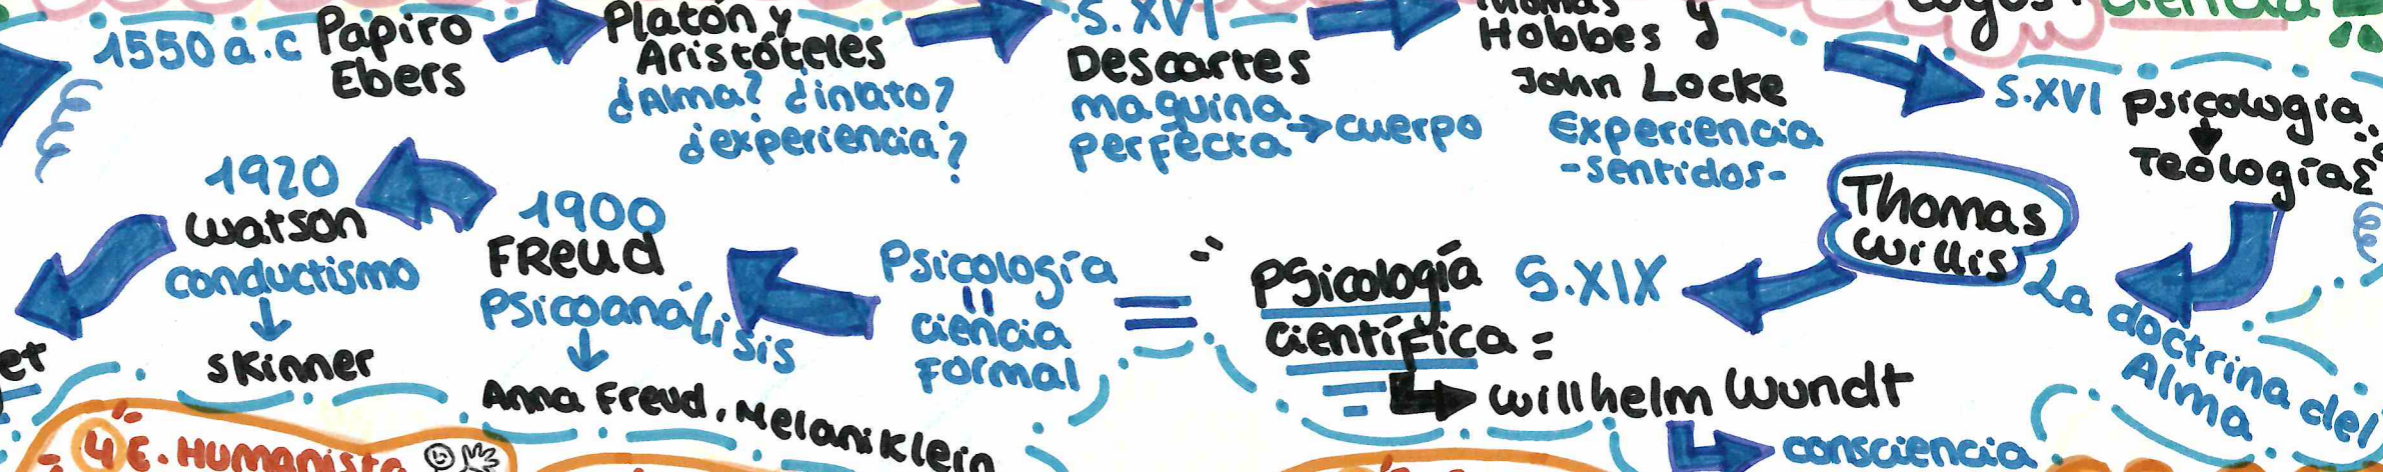 1550 a.c Papiro
Ebers
Platón y
Aristóteles
¿Alma? ¿inato?
¿experiencia?
S. XVI
Descartes
maquina
perfecta → cuerpo
Thomas
Hobbes y
John Locke
Experiencia
-sentidos-
Logos:
ciencia
S.XVI Psicología
Teología
Thomas
Willis
La doctrina del
Alma
S.XIX
Psicología
científica =
Willhelm Wundt
consciencia
=
Psicología
=
ciencia
formal
1900
FReud
Psicoanálisis
Anna Freud, Melani Klein
1920
Watson
conductismo
Skinner
et
4 E. Humanista